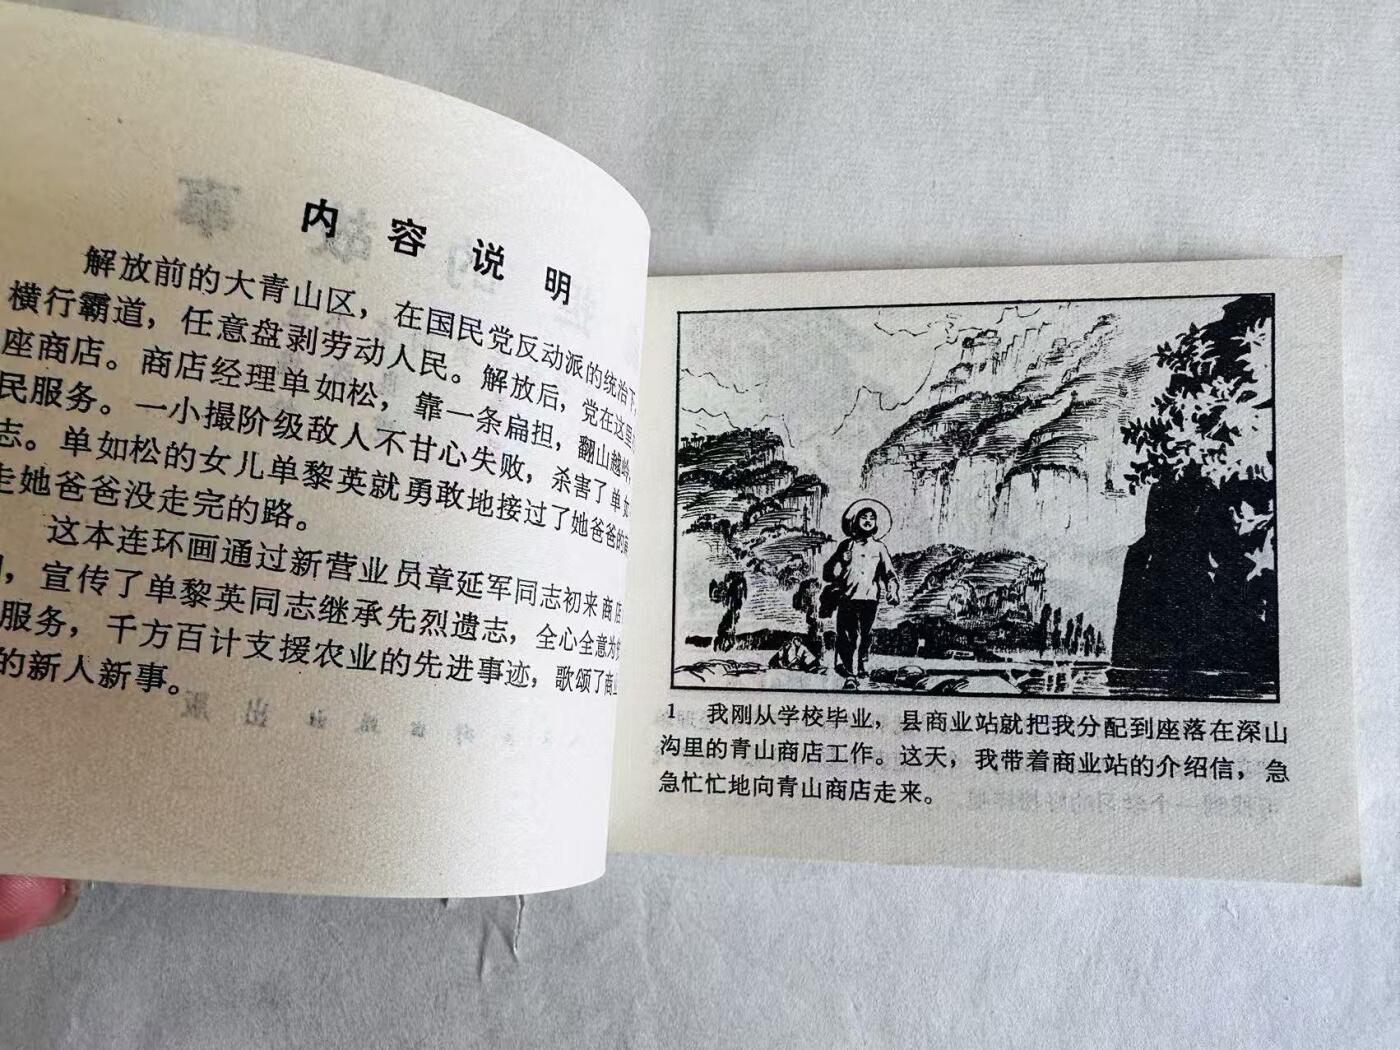 内容说明
解放前的大青山区，在国民党反动派的统治下，
横行霸道，任意盘剥劳动人民。解放后，党在这里
座商店。商店经理单如松，靠一条扁担，翻山越岭，
民服务。一小撮阶级敌人不甘心失败，杀害了单如
志。单如松的女儿单黎英就勇敢地接过了她爸爸的
走她爸爸没走完的路。
这本连环画通过新营业员章延军同志初来商店
，宣传了单黎英同志继承先烈遗志，全心全意为
服务，千方百计支援农业的先进事迹，歌颂了商业
的新人新事。
1 我刚从学校毕业，县商业站就把我分配到座落在深山
沟里的青山商店工作。这天，我带着商业站的介绍信，急
急忙忙地向青山商店走来。